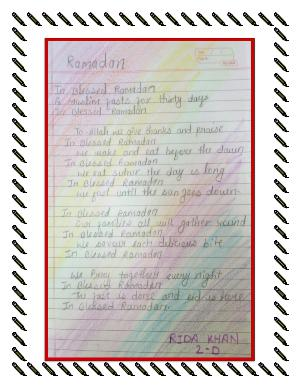 Ramadan
In Blessed Ramadan
Muslim fasts for thirty days
In Blessed Ramadan
To Allah we give thanks and praise
In Blessed Ramadan
We wake and eat before the dawn
In Blessed Ramadan
We eat suhur the day is long
In Blessed Ramadan
We fast until the sun goes down
In Blessed Ramadan
Our families all will gather round
In Blessed Ramadan
We savour each delicious bite
In Blessed Ramadan
We Pray together every night
In Blessed Ramadan
The fast is done and eid is here
In Blessed Ramadan
RIDA KHAN
2-D